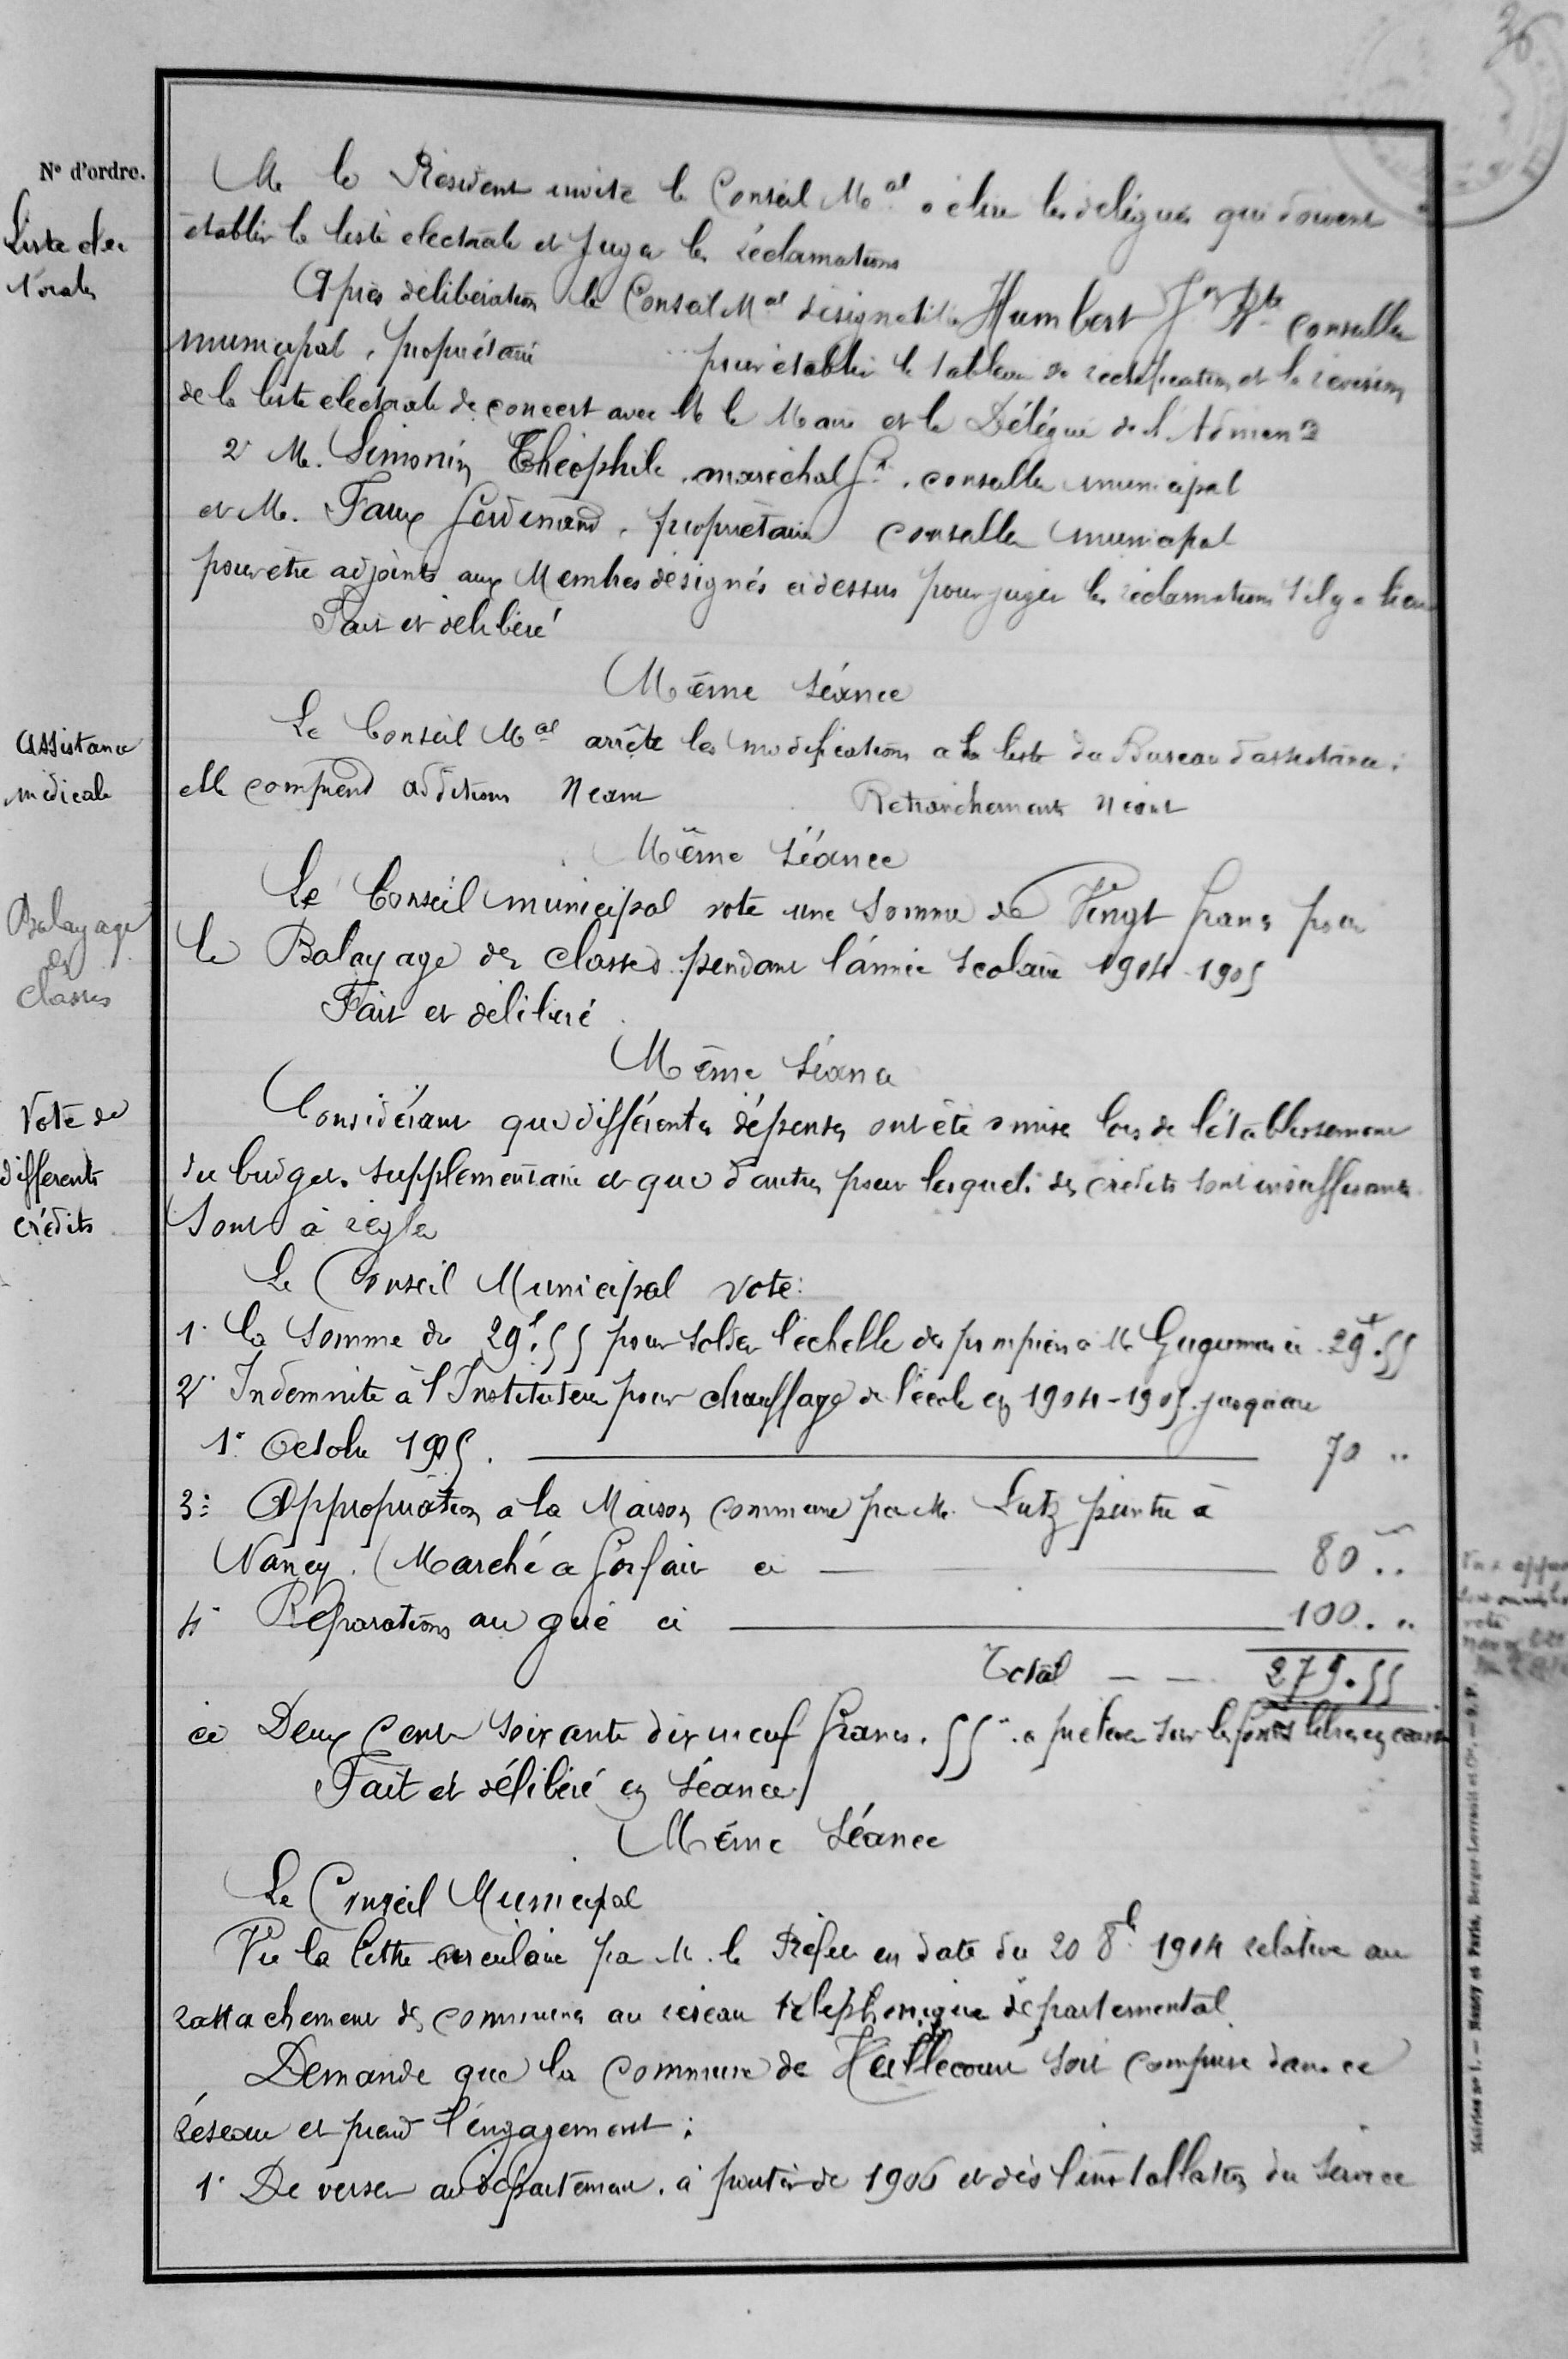 26
N° d'ordre.
Liste élec
torale
M. le Président invite le Conseil M.al à élire les délégués qui doivent
établir la liste électorale et juger les réclamations
Après délibération le Conseil M.al désigne M. Humbert Jn Bte conseiller
municipal, propriétaire pour établir le tableau de rectification et la révision
de la liste électorale de concert avec M. le Maire et le Délégué de l'Admion
2° M. Simonin Théophile, maréchal ft, conseiller municipal
et M. Faux Ferdinand, propriétaire conseiller municipal
pour être adjoints aux Membres désignés ci dessus pour juger les réclamations s'il y a lieu
Fait et délibéré
Même Séance
Assistance
médicale
Le Conseil M.al arrête les modifications à la liste du Bureau d'assistance.
elle comprend additions Néant Retranchements néant
Même Séance
Balayage
des
classes
Le Conseil municipal vote une Somme de Vingt francs pour
le Balayage des classes pendant l'année scolaire 1904-1905
Fait et délibéré
Même Séance
Vote de
différents
crédits
Considérant que différentes dépenses ont été omises lors de l'établissement
du budget supplémentaire et que d'autres pour lesquels des crédits sont insuffisants
Sont à régler
Le Conseil Municipal vote:
1° la Somme de 29f.55 pour solder l'échelle des pompiers à M. Gugumus ci 29f.55
2° Indemnité à l'Instituteur pour chauffage de l'école en 1904-1905 jusqu'au
1er Octobre 1905. 70 "
3° Appropriation à la Maison commune par M. Lutz peintre à
Nancy. (Marché à forfait ci 80 "
4° Réparations au gué ci 100. "
Total 279.55
ci Deux cent soixante dix neuf francs. 55 à prélever sur les fonds libres en caisse
Fait et délibéré en Séance
Même Séance
Le Conseil Municipal
Vu la lettre circulaire par M. le Préfet en date du 20 8bre 1904 relative au
rattachement des communes au réseau téléphonique départemental
Demande que la commune de Haillecourt soit comprise dans ce
réseau et prend l'engagement:
1° De verser au Département, à partir de 1906 et dès l'installation du Service
Mairies n° 1. — Nancy et Paris, Berger-Levrault et Cie. — S. P.